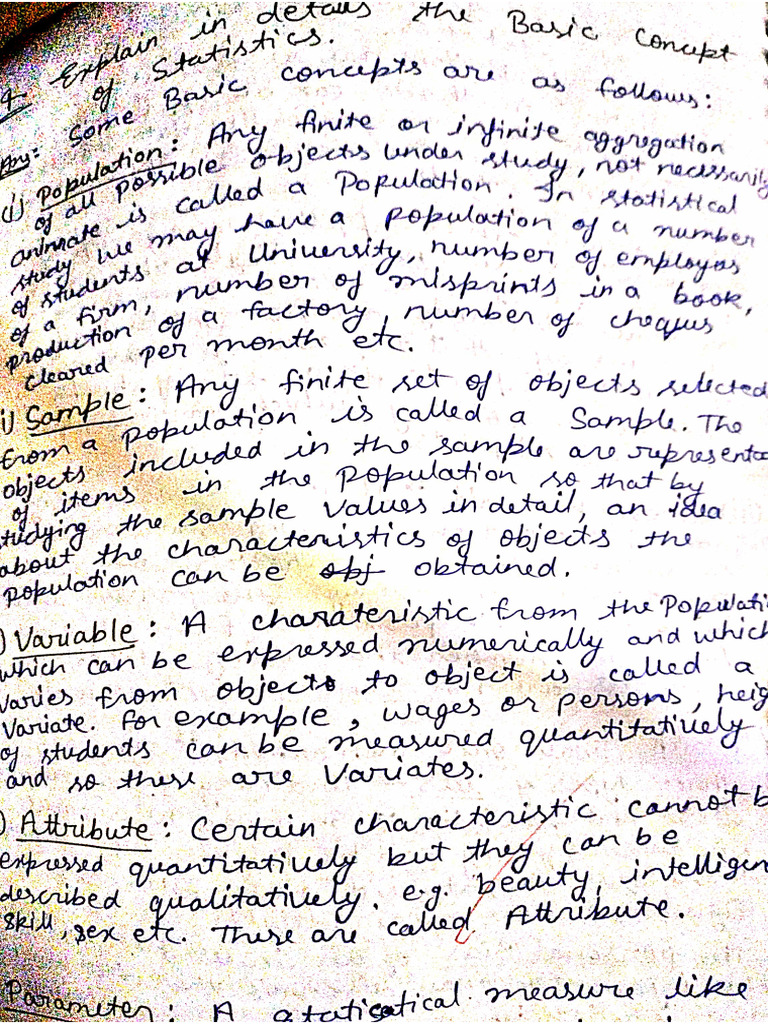 4. Explain in details the Basic Concept
of Statistics.
Any: Some Basic concepts are as follows:
i) Population: Any finite or infinite aggregation
of all possible objects under study, not necessarily
animate is called a Population. In statistical
study we may have a population of a number
of students at University, number of employes
of a firm, number of misprints in a book,
production of a factory, number of cheques
cleared per month etc.
i) Sample: Any finite set of objects selected
from a population is called a Sample. The
objects included in the sample are representa
of items in the population so that by
studying the sample values in detail, an idea
about the characteristics of objects the
population can be obj obtained.
) Variable: A charateristic from the Populati
which can be expressed numerically and which
varies from objects to object is called a
Variate. For example, wages or persons, heig
of students can be measured quantitatively
and so these are Variates.
) Attribute: Certain characteristic cannot b
expressed quantitatively but they can be
described qualitatively. e.g. beauty, intelligen
skill, sex etc. These are called Attribute.
Parameter: A statistical measure like